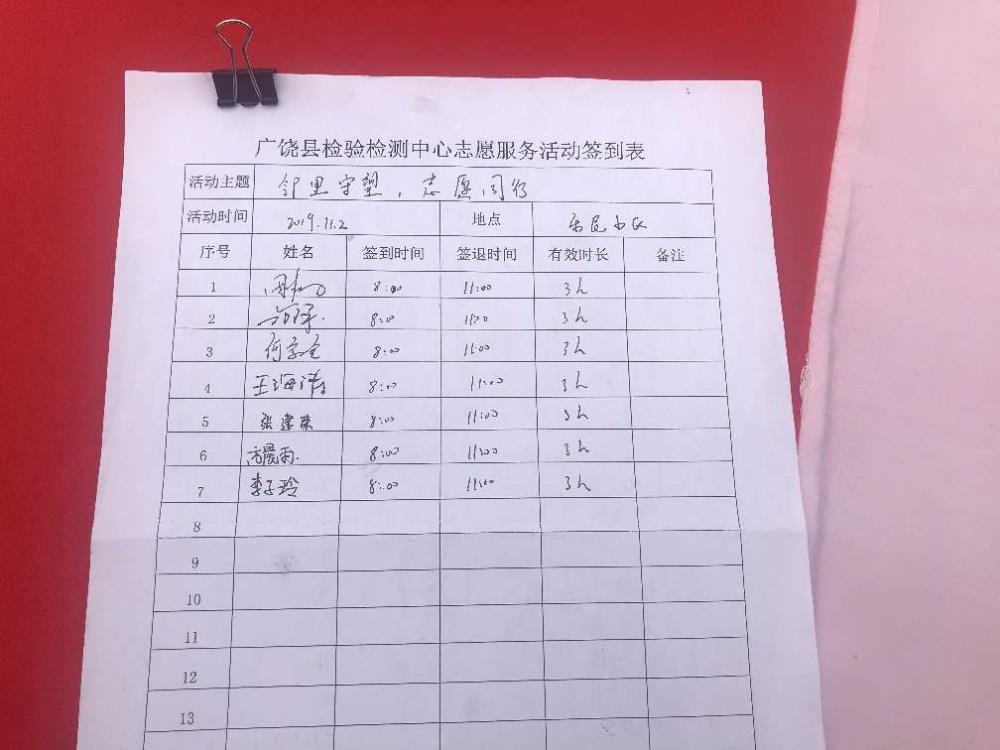 广饶县检验检测中心志愿服务活动签到表
活动主题 邻里守望，志愿同行
活动时间 2019.11.2 地点
序号 姓名 签到时间 签退时间 有效时长 备注
1 8:00 11:00 3h
2 8:00 11:00 3h
3 8:00 11:00 3h
4 王海涛 8:00 11:00 3h
5 张建荣 8:00 11:00 3h
6 方晨雨 8:00 11:00 3h
7 李子玲 8:00 11:00 3h
8
9
10
11
12
13